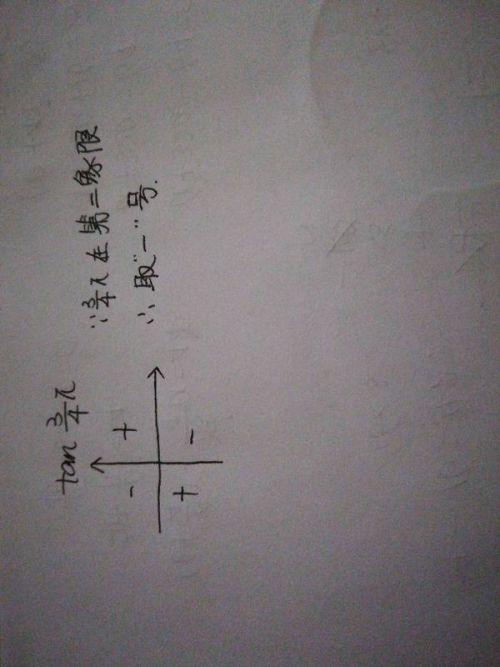 tan 3/4 π
∵ 3/4 π 在第二象限
∴ 取“-”号.
- +
+ -